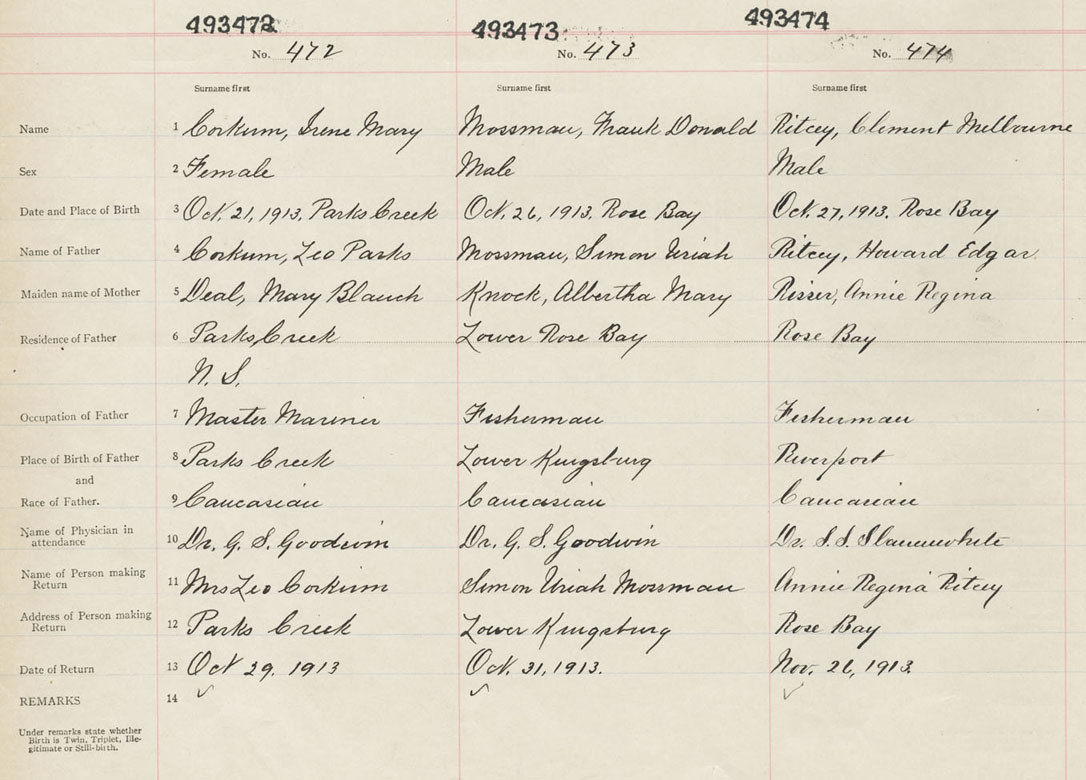 493472 493473 493474
No. 472 No. 473 No. 474
Surname first Surname first Surname first
Name 1 Corkum, Irene Mary Mossman, Frank Donald Ritcey, Clement Melbourne
Sex 2 Female Male Male
Date and Place of Birth 3 Oct. 21, 1913. Parks Creek Oct. 26, 1913. Rose Bay Oct. 27, 1913. Rose Bay
Name of Father 4 Corkum, Leo Parks Mossman, Simon Uriah Ritcey, Howard Edgar.
Maiden name of Mother 5 Deal, Mary Blanch Knock, Albertha Mary Risser, Annie Regina
Residence of Father 6 Parks Creek Lower Rose Bay Rose Bay
N. S.
Occupation of Father 7 Master Mariner Fisherman Fisherman
Place of Birth of Father 8 Parks Creek Lower Kingsburg Riverport
and
Race of Father. 9 Caucasian Caucasian Caucasian
Name of Physician in
attendance 10 Dr. G. S. Goodwin Dr. G. S. Goodwin Dr. S. S. Slauenwhite
Name of Person making
Return 11 Mrs Leo Corkum Simon Uriah Mossman Annie Regina Ritcey
Address of Person making
Return 12 Parks Creek Lower Kingsburg Rose Bay
Date of Return 13 Oct 29. 1913 Oct. 31, 1913. Nov. 26, 1913.
REMARKS 14
Under remarks state whether
Birth is Twin, Triplet, Ille-
gitimate or Still-birth.